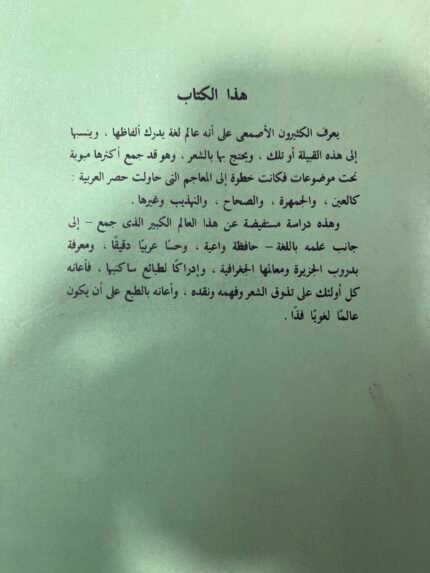 هذا الكتاب
يعرف الكثيرون الأصمعى على أنه عالم لغة يدرك ألفاظها ، وينسبها
إلى هذه القبيلة أو تلك ، ويحتج بها بالشعر ، وهو قد جمع أكثرها مبوبة
تحت موضوعات فكانت خطوة إلى المعاجم التى حاولت حصر العربية :
كالعين ، والجمهرة ، والصحاح ، والتهذيب وغيرها .
وهذه دراسة مستفيضة عن هذا العالم الكبير الذى جمع – إلى
جانب علمه باللغة – حافظة واعية ، وحسًا عربيًا دقيقًا ، ومعرفة
بدروب الجزيرة ومعالمها الجغرافية ، وإدراكًا لطبائع ساكنيها ، فأعانه
كل أولئك على تذوق الشعر وفهمه ونقده ، وأعانه بالطبع على أن يكون
عالمًا لغويًا فذًا .